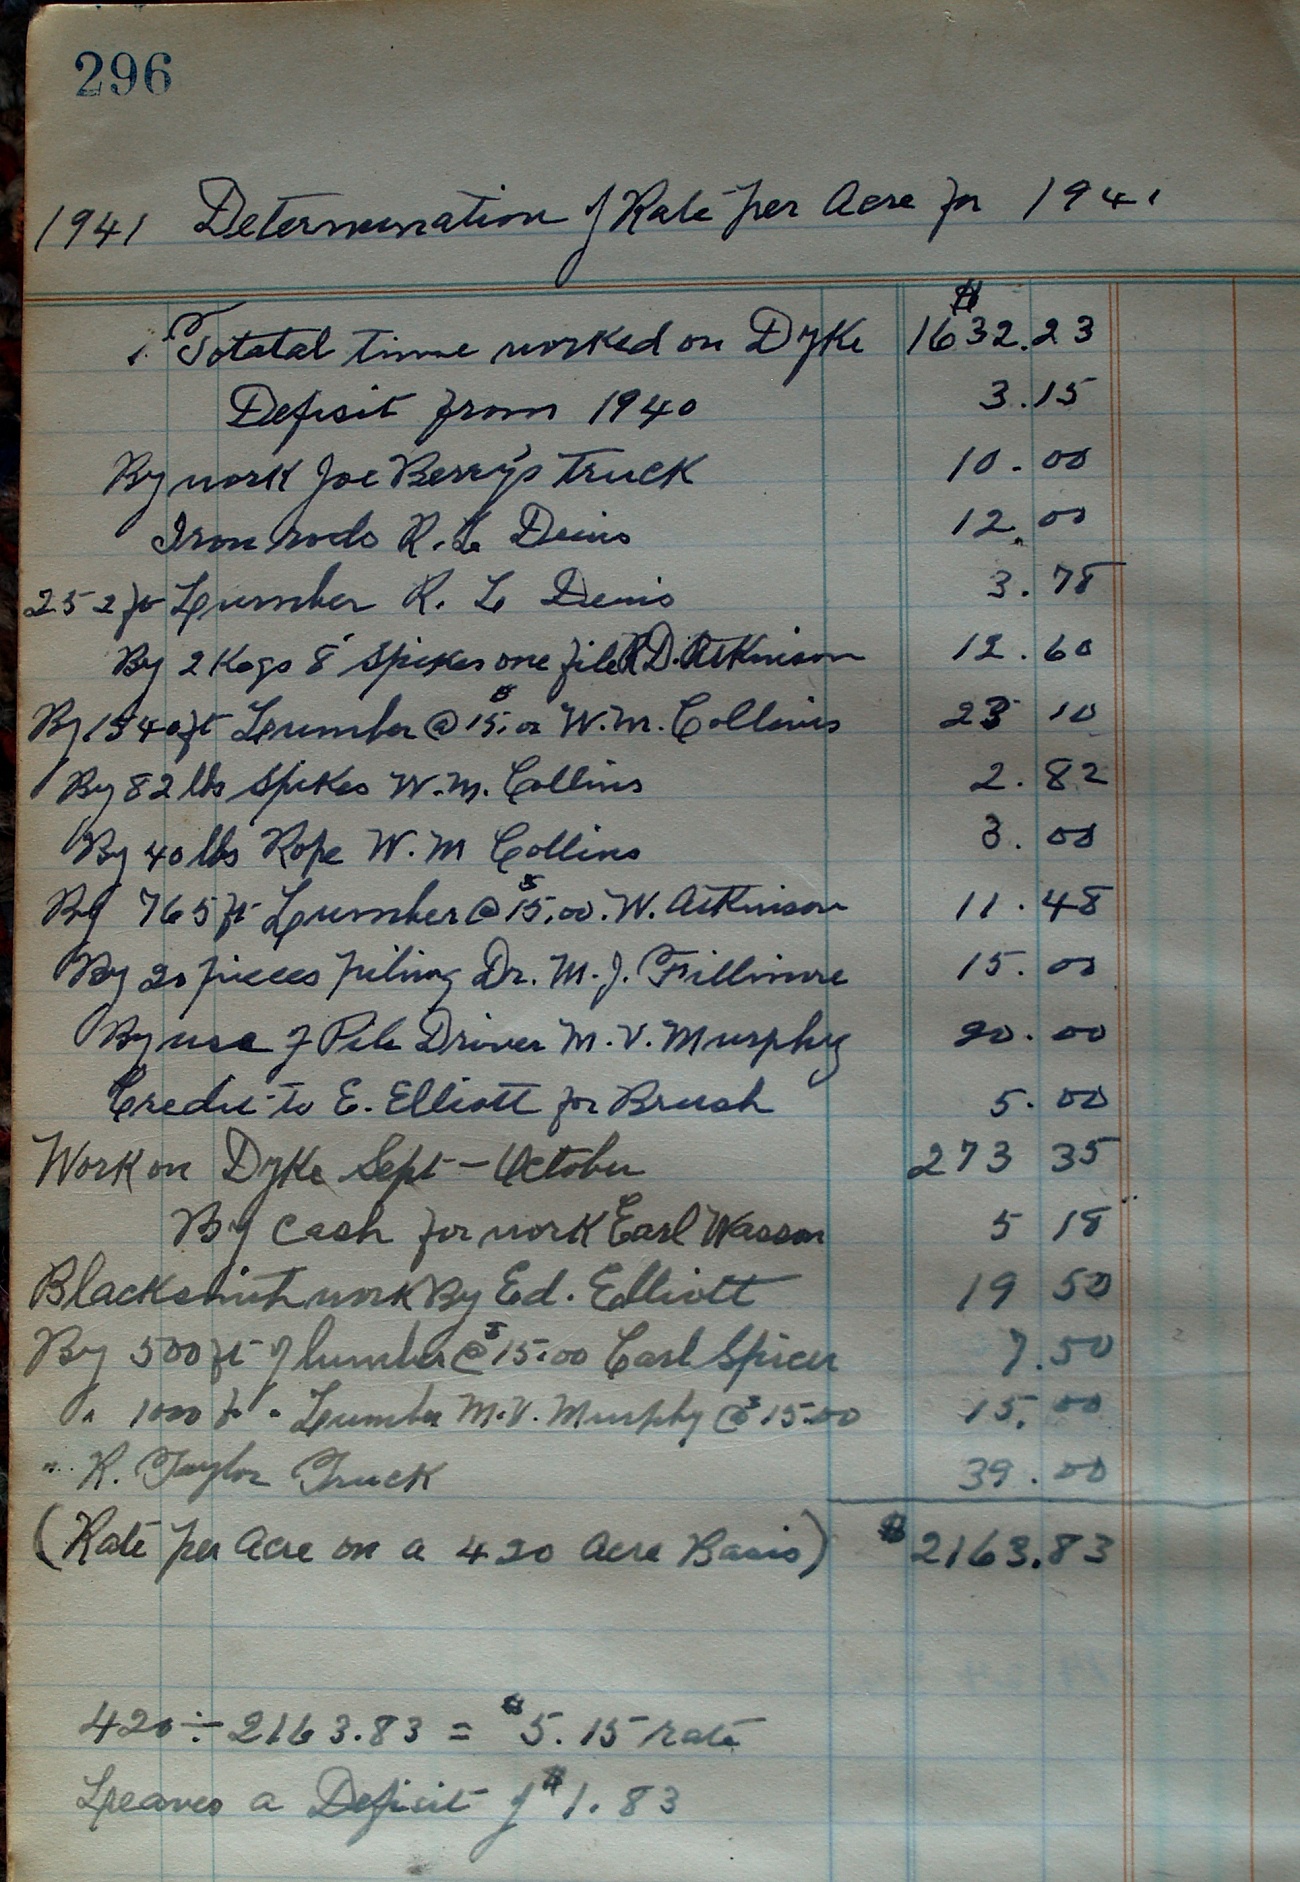 296
1941 Determination of Rate per Acre for 1941
1. Totatal time worked on Dyke $1632.23
Defisit from 1940 3.15
By work Joe Berry's Truck 10.00
Iron rods R. L. Deins 12.00
252 ft Lumber R. L Deins 3.78
By 2 Kegs 8" Spikes one file R.D. Atkinson 12.60
By 1540 ft Lumber @ $15.00 W.M. Collins 23 10
By 82 lbs Spikes W.M. Collins 2.82
By 40 lbs Rope W.M Collins 3.00
By 765 ft Lumber @ $15.00. W. Atkinson 11.48
By 20 pieces piling Dr. M.J. Fillimore 15.00
By use of Pile Driver M.V. Murphy 20.00
Credit to E. Elliott for Brush 5.00
Work on Dyke Sept - October 273 35
By Cash for work Earl Wasson 5 18
Blacksmith work By Ed. Elliott 19 50
By 500 ft of lumber @ $15.00 Carl Spicer 7.50
" 1000 ft " Lumber M.V. Murphy @ $15.00 15.00
" R. Taylor Truck 39.00
(Rate per Acre on a 420 Acre Basis) $2163.83
420 ÷ 2163.83 = $5.15 rate
Leaves a Defisit of $1.83